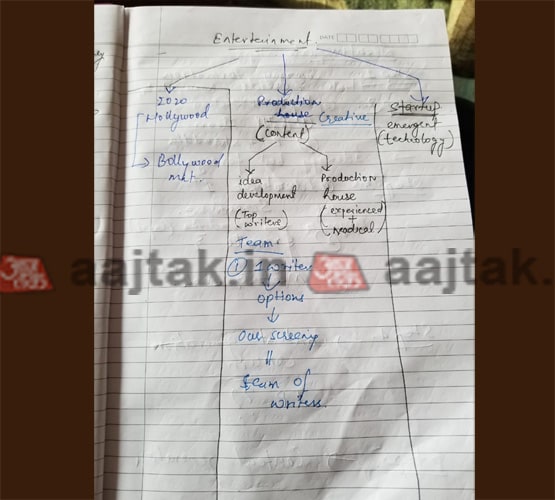 Entertainment.
DATE
2020
Hollywood
Bollywood
mkt.
Production
house
(content)
Creative
Startup
emergent
(techology)
idea
development
(Top
writers)
Production
house
(experienced
+
radical)
Team
① 1 writer
options
Our screening
team of
writers.
आज तक
aajtak.in
आज तक
aajtak.